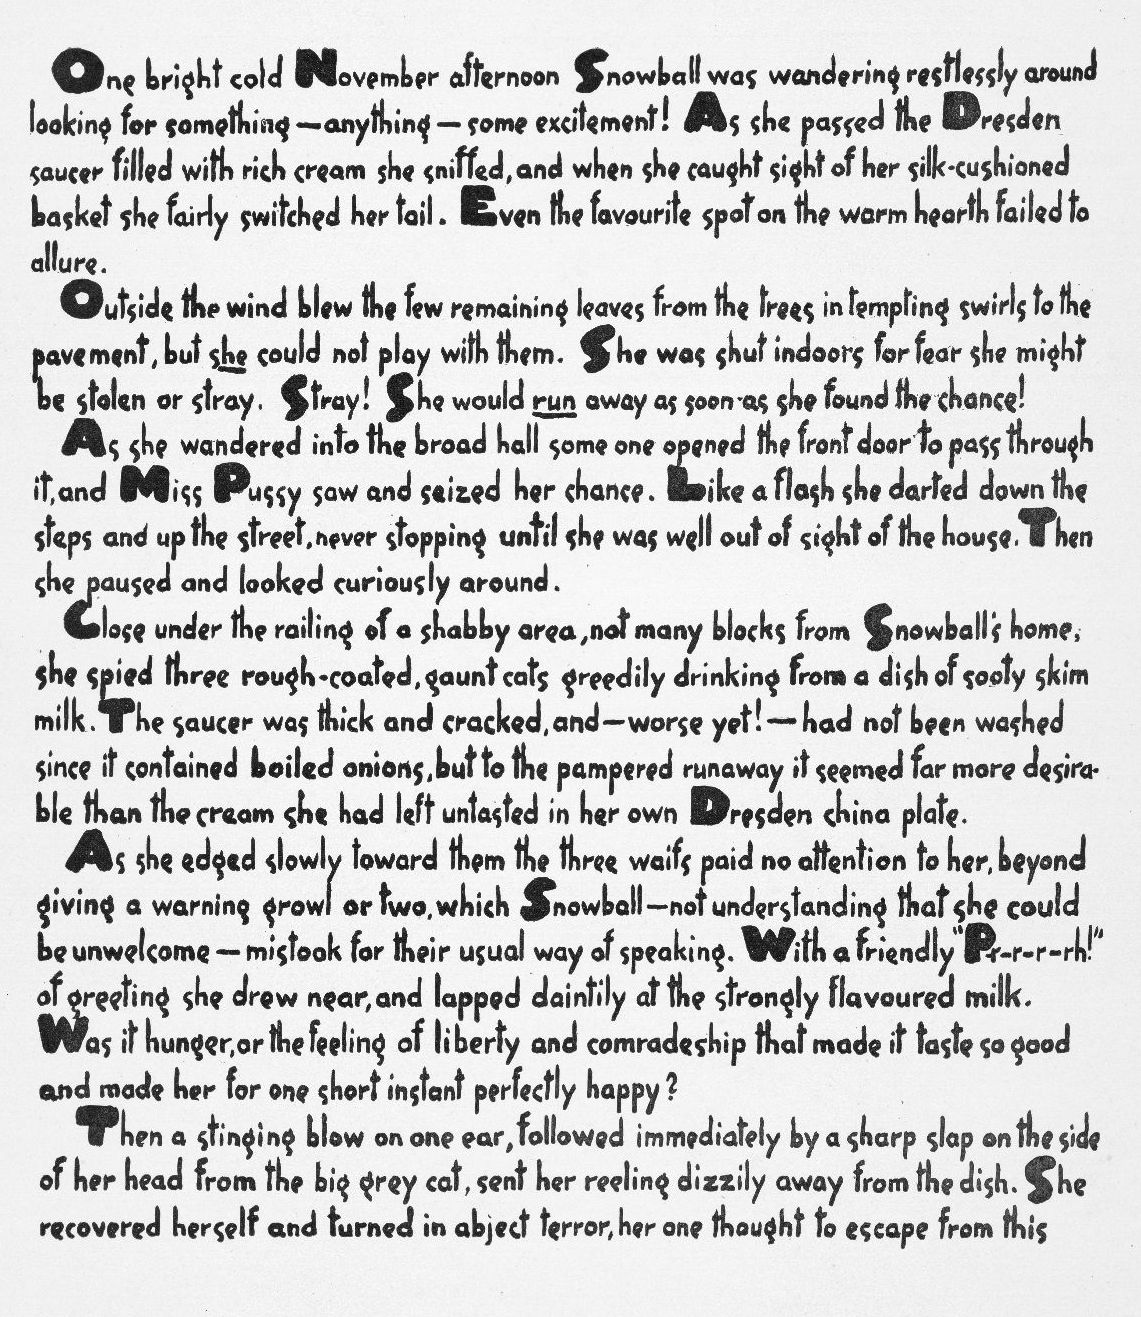 One bright cold November afternoon Snowball was wandering restlessly around
looking for something—anything—some excitement! As she passed the Dresden
saucer filled with rich cream she sniffed, and when she caught sight of her silk-cushioned
basket she fairly switched her tail. Even the favourite spot on the warm hearth failed to
allure.
Outside the wind blew the few remaining leaves from the trees in tempting swirls to the
pavement, but she could not play with them. She was shut indoors for fear she might
be stolen or stray. Stray! She would run away as soon as she found the chance!
As she wandered into the broad hall some one opened the front door to pass through
it, and Miss Pussy saw and seized her chance. Like a flash she darted down the
steps and up the street, never stopping until she was well out of sight of the house. Then
she paused and looked curiously around.
Close under the railing of a shabby area, not many blocks from Snowball's home,
she spied three rough-coated, gaunt cats greedily drinking from a dish of sooty skim
milk. The saucer was thick and cracked, and—worse yet!—had not been washed
since it contained boiled onions, but to the pampered runaway it seemed far more desira-
ble than the cream she had left untasted in her own Dresden china plate.
As she edged slowly toward them the three waifs paid no attention to her, beyond
giving a warning growl or two, which Snowball—not understanding that she could
be unwelcome—mistook for their usual way of speaking. With a friendly "Pr-r-r-rh!"
of greeting she drew near, and lapped daintily at the strongly flavoured milk.
Was it hunger, or the feeling of liberty and comradeship that made it taste so good
and made her for one short instant perfectly happy?
Then a stinging blow on one ear, followed immediately by a sharp slap on the side
of her head from the big grey cat, sent her reeling dizzily away from the dish. She
recovered herself and turned in abject terror, her one thought to escape from this